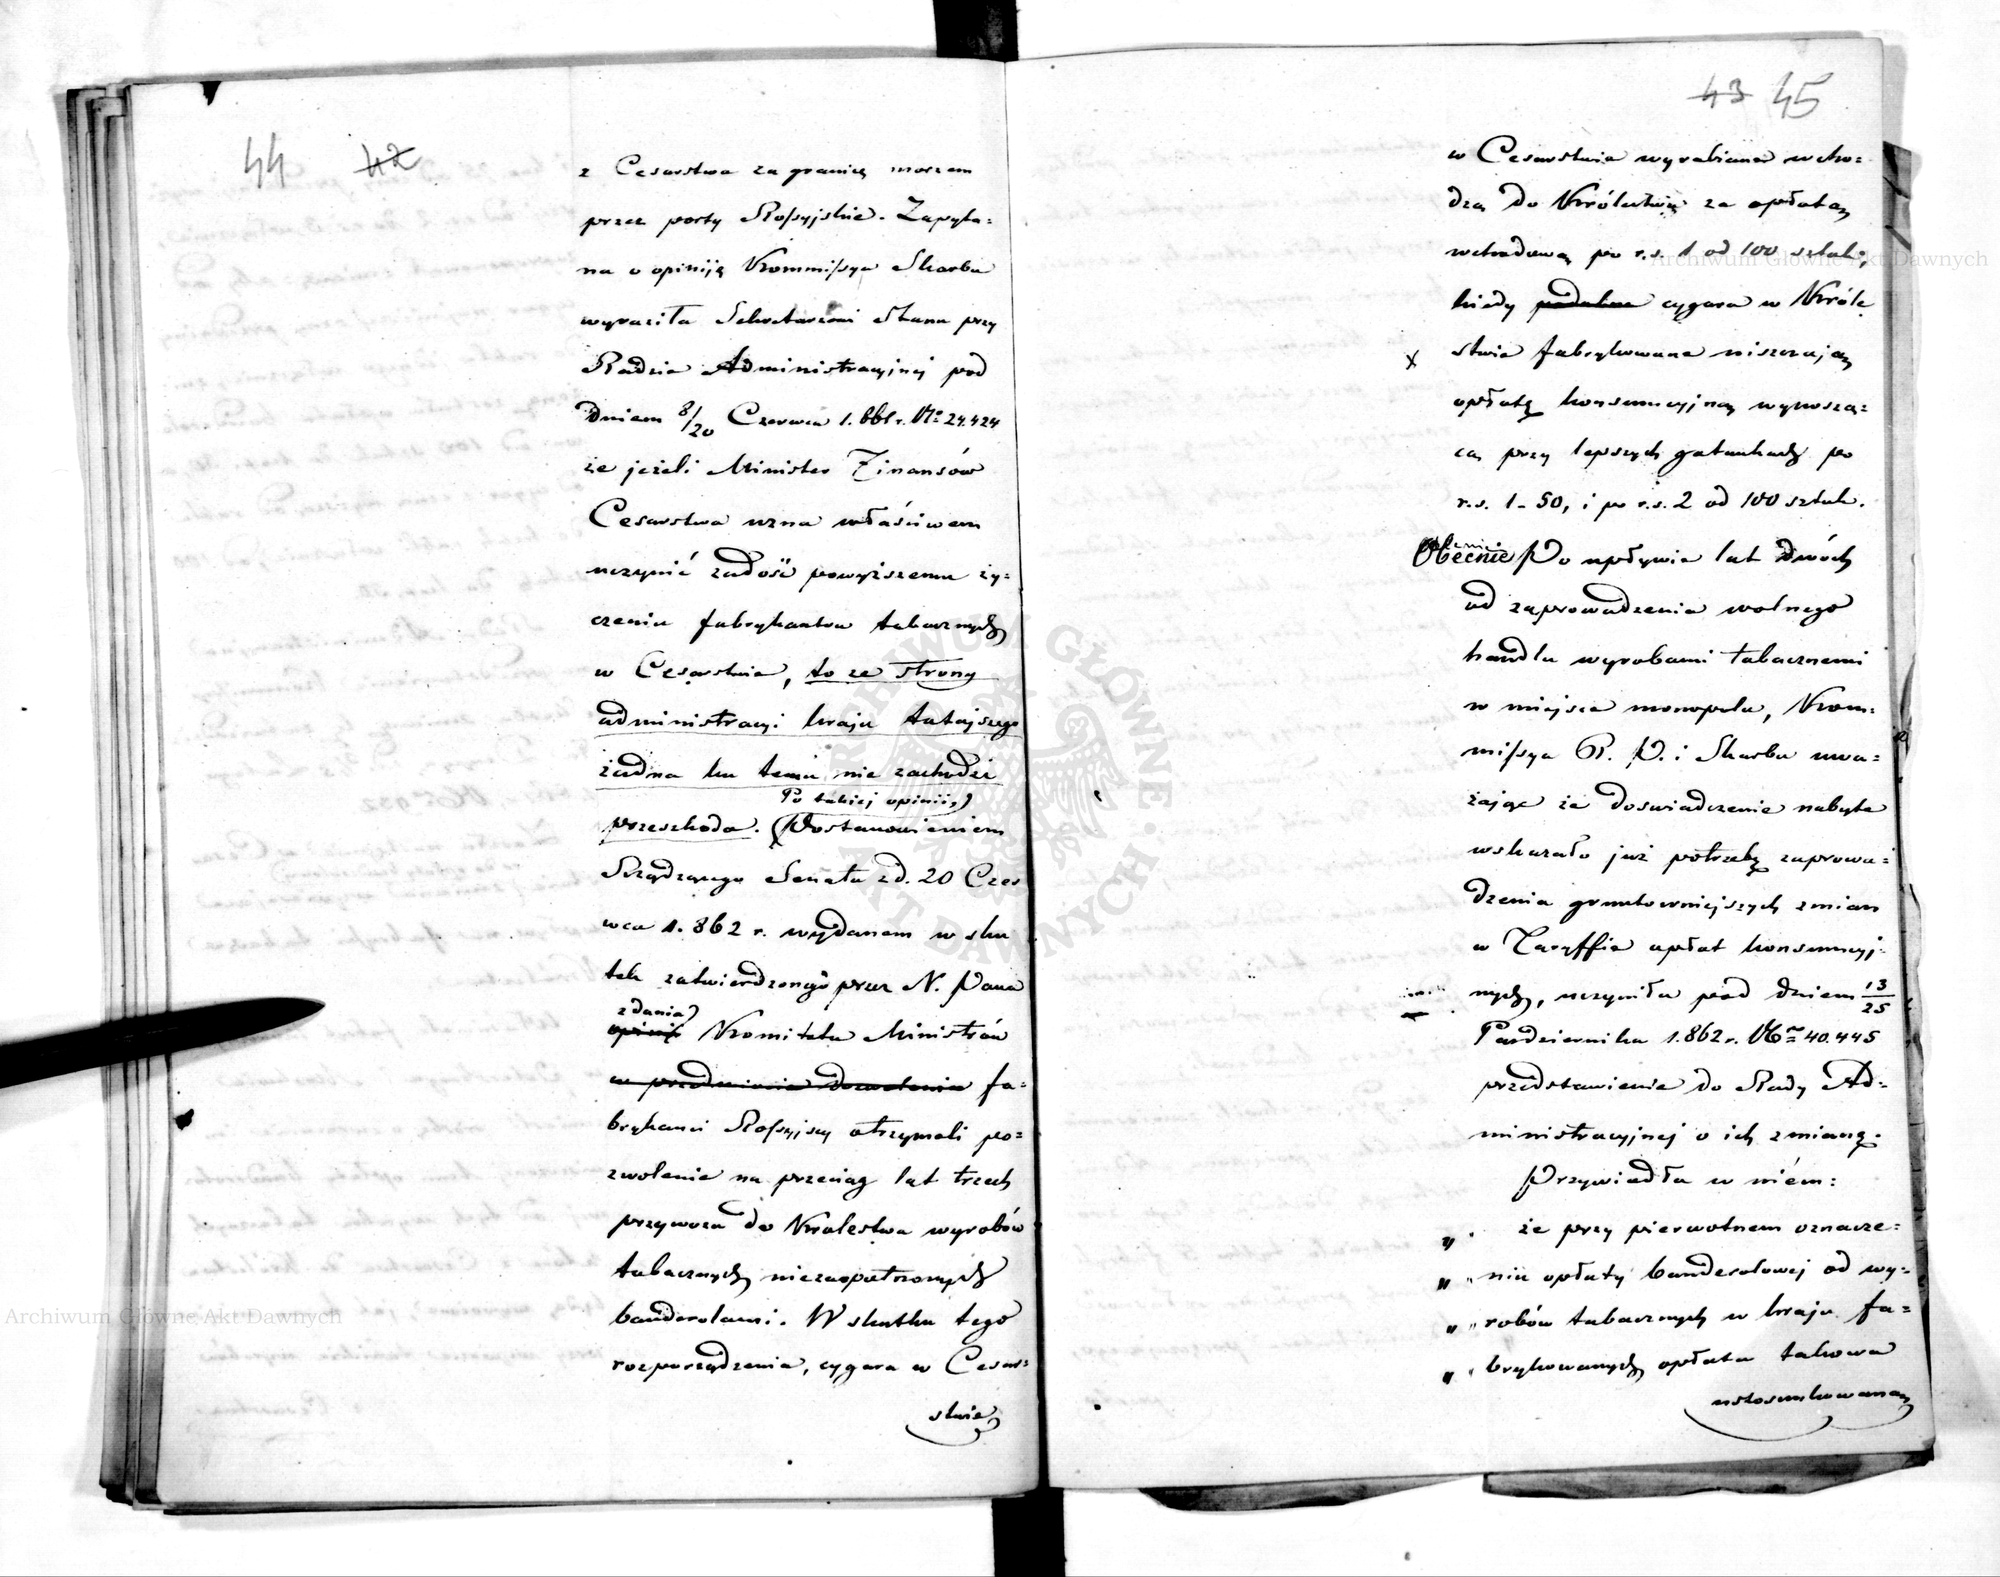 44 42
z Cesarstwa za granicę morzem
przez porty Rossyjskie. Zapyta=
na o opiniję Kommissya Skarbu
wyraziła Sekretarzowi Stanu przy
Radzie Administracyjnej pod
dniem 8/20 Czerwca 1.861 r. No 24.424
że jeżeli Minister Finansów
Cesarstwa uzna właściwem
uczynić zadość powyższemu ży=
czeniu fabrykantów tabacznych
w Cesarstwie, to ze strony
administracyi kraju tutejszego
żadna ku temu nie zachodzi
Po takiej opinii,
przeszkoda. (Postanowieniem
Rządzącego Senatu z d. 20 Czer
wca 1.862 r. wydanem w sku
tek zatwierdzonego przez N. Pana
zdania
opinii Komitetu Ministrów
w przedmiocie dozwolenia fa=
brykanci Rossyjscy otrzymali po=
zwolenie na przeciąg lat trzech
przywozu do Królestwa wyrobów
tabacznych niezaopatrzonych
banderolami. W skutku tego
rozporządzenia, cygara w Cesar=
stwie
43 45
w Cesarstwie wyrabiane wcho=
dzą do Królestwa za opłatą
wchodową po r.s. 1 od 100 sztuk,
kiedy podobne cygara w Króle
x stwie fabrykowane uiszczają
opłatę konsumcyjną wynoszą=
cą przy lepszych gatunkach po
r.s. 1-50, i po r.s. 2 od 100 sztuk.
Obecnie Po upływie lat dwóch
od zaprowadzenia wolnego
handlu wyrobami tabacznemi
w miejsce monopolu, Kom=
missya P. P. i Skarbu uwa=
żając że doswiadczenie nabyte
wskazało już potrzebę zaprowa=
dzenia gruntowniejszych zmian
w Taryffie opłat konsumcyj=
nych, uczyniła pod dniem 13/25
Października 1.862 r. No 40.445
przedstawienie do Rady Ad=
ministracyjnej o ich zmianę.
Przywiodła w niém:
" że przy pierwotnem oznacze=
" niu opłaty banderolowej od wy=
" robów tabacznych w kraju fa=
" brykowanych opłata takowa
ustosunkowaną
Archiwum Główne Akt Dawnych
Archiwum Główne Akt Dawnych
ARCHIWUM GŁÓWNE AKT DAWNYCH